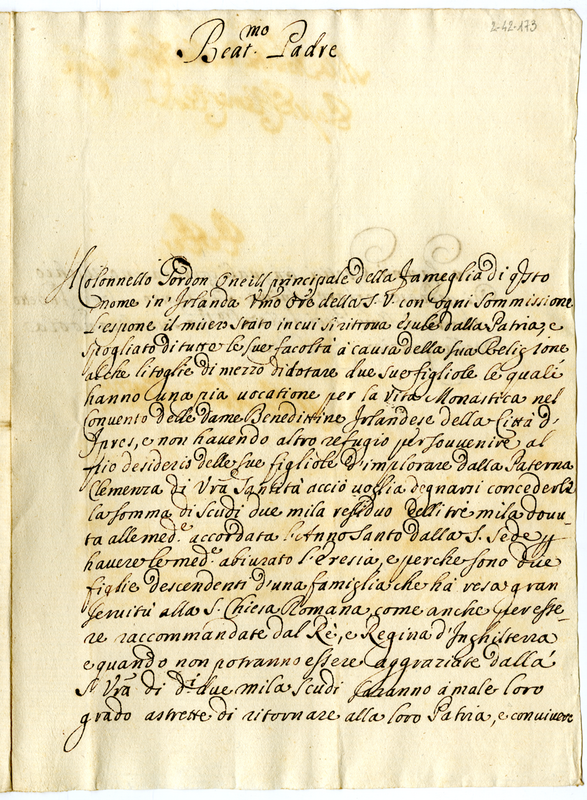 2-42-173
Beat.mo Padre
Colonnello Gordon Oneill principale della fameglia di qsto
nome in Irlanda Vmo Ore della S. V. con ogni sommissione
L'espone il misero stato in cui si ritrova esule dalla Patria, e
spogliato di tutte le sue facoltà à causa della sua Religione
al che li toglie di mezzo di dotare due sue figliole le quali
hanno una pia vocatione per la vita Monastica nel
Convento delle Dame Benedittine Irlandese della Città d'
Ipres, e non havendo altro refugio per souvenire al
pio desiderio delle sue figliole d'implorare dalla Paterna
Clemenza di Vrã Santità acciò voglia degnarsi concederle
la somma di scudi due mila residuo delli tre mila dovu-
ta alle med.e accordata l'Anno Santo dalla S. Sede p
havere le med.e abiurato l'eresia, e perche sono due
figlie descendenti d'una famiglia che hà resa gran
servitù alla S. Chiesa Romana, come anche per esse-
re raccommandate dal Rè, e Regina d'Inghilterra
e quando non potranno essere aggraziate dallà
S. Vrã di d.i due mila scudi saranno à male loro
grado astrette di ritornare alla loro Patria, e convivere